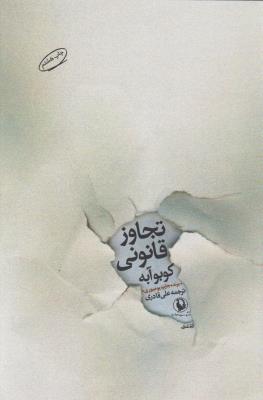 چاپ هشتم
تجاوز
قانونی
کوبو آبه
ترجمه علی قادری